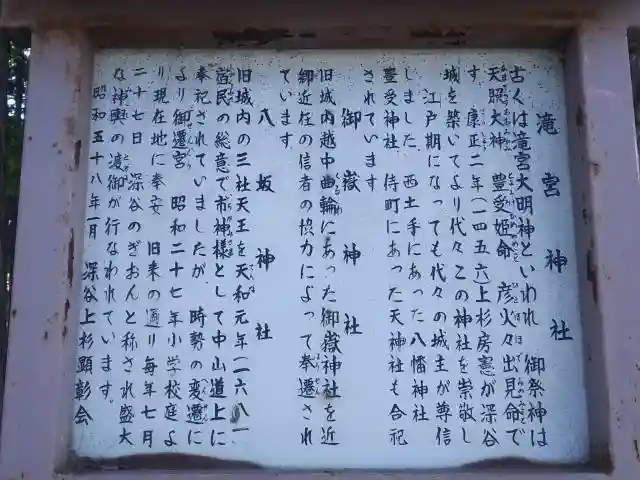 滝宮神社
古くは滝宮大明神といわれ 御祭神は
天照大神 豊受姫命 彦火々出見命で
す。康正二年(一四五六)上杉房憲が深谷
城を築いてより代々この神社を崇敬し
江戸期になっても代々の城主が尊信
しました。西土手にあった八幡神社
豊受神社、侍町にあった天神社も合祀
されています
御嶽神社
旧城内越中曲輪にあった御嶽神社を近
御近在の信者の協力によって奉遷され
ています。
八坂神社
旧城内の三社天王を天和元年(一六八一
宿民の総意で市神様として中山道上に
奉祀されていましたが、時勢の変遷に
より御遷宮 昭和二十七年小学校庭よ
り現在地に奉安 旧来の通り毎年七月
二十七日 深谷のぎおんと称され盛大
な神輿の渡御が行なわれています。
昭和五十八年一月 深谷上杉顕彰会